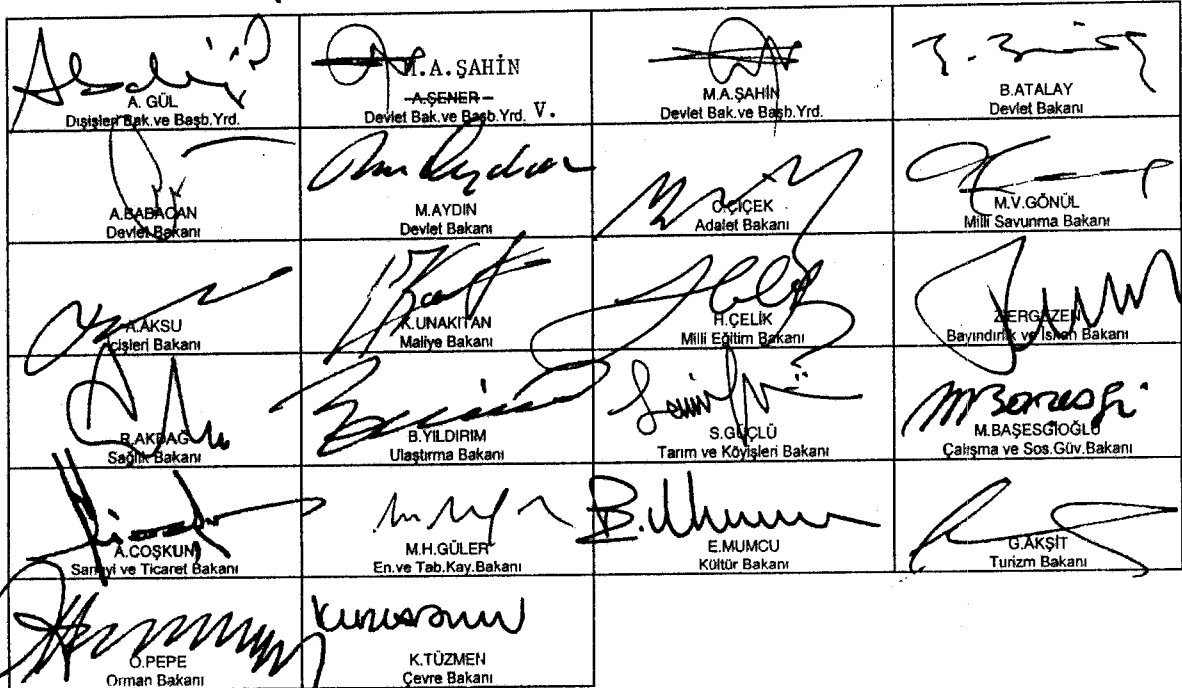 A. GÜL
Dışişleri Bak.ve Başb.Yrd.
M.A.ŞAHİN
A.ŞENER
Devlet Bak.ve Başb.Yrd. V.
M.A.ŞAHİN
Devlet Bak.ve Başb.Yrd.
B.ATALAY
Devlet Bakanı
A.BABACAN
Devlet Bakanı
M.AYDIN
Devlet Bakanı
C.ÇİÇEK
Adalet Bakanı
M.V.GÖNÜL
Milli Savunma Bakanı
A.AKSU
İçişleri Bakanı
K.UNAKITAN
Maliye Bakanı
H.ÇELİK
Milli Eğitim Bakanı
Z.ERGEZEN
Bayındırlık ve İskan Bakanı
R.AKDAĞ
Sağlık Bakanı
B.YILDIRIM
Ulaştırma Bakanı
S.GÜÇLÜ
Tarım ve Köyişleri Bakanı
M.BAŞESGİOĞLU
Çalışma ve Sos.Güv.Bakanı
A.COŞKUN
Sanayi ve Ticaret Bakanı
M.H.GÜLER
En.ve Tab.Kay.Bakanı
E.MUMCU
Kültür Bakanı
G.AKŞİT
Turizm Bakanı
O.PEPE
Orman Bakanı
K.TÜZMEN
Çevre Bakanı